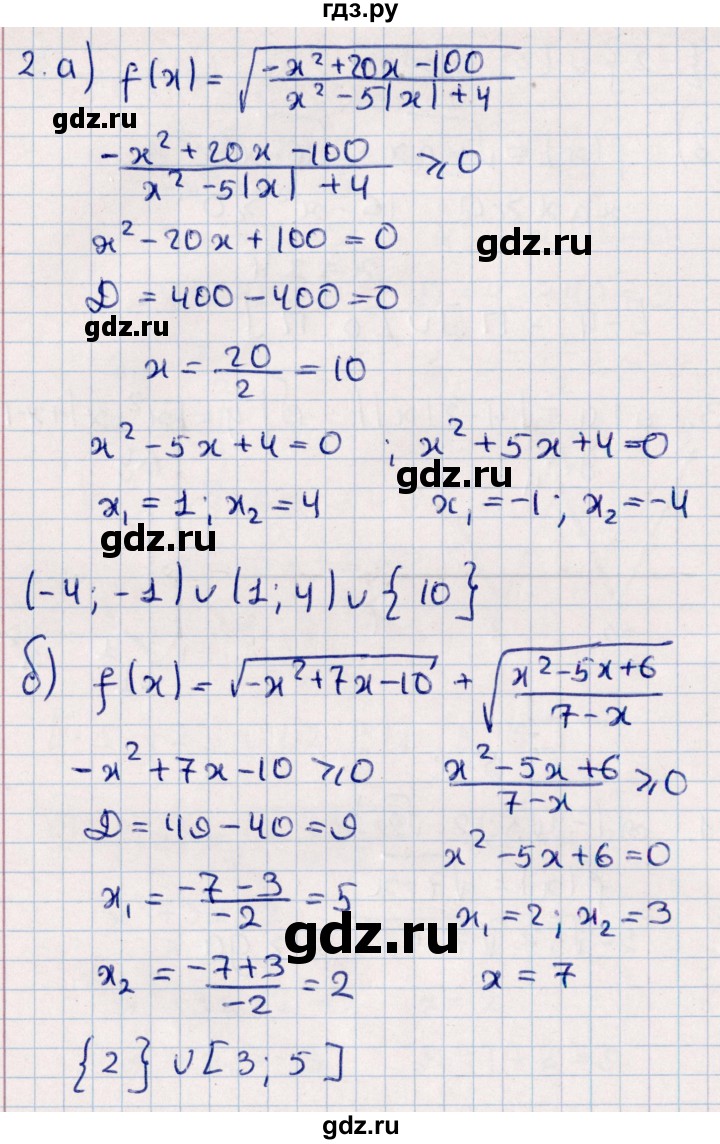 гдз.ру
2. а) f(x) = √((-x² + 20x - 100)/(x² - 5|x| + 4))
gdz.ru
(-x² + 20x - 100)/(x² - 5|x| + 4) ⩾ 0
x² - 20x + 100 = 0
gdz.ru
D = 400 - 400 = 0
gdz.ru
x = 20/2 = 10
x² - 5x + 4 = 0 ; x² + 5x + 4 = 0
gdz.ru
x₁ = 1 ; x₂ = 4 x₁ = -1 ; x₂ = -4
gdz.ru
(-4; -1) ∪ (1; 4) ∪ {10}
б) f(x) = √(-x² + 7x - 10) + √((x² - 5x + 6)/(7 - x))
-x² + 7x - 10 ⩾ 0 (x² - 5x + 6)/(7 - x) ⩾ 0
D = 49 - 40 = 9
x² - 5x + 6 = 0
x₁ = (-7 - 3)/(-2) = 5
x₁ = 2 ; x₂ = 3
gdz.ru
x₂ = (-7 + 3)/(-2) = 2 x = 7
{2} ∪ [3; 5]
gdz.ru